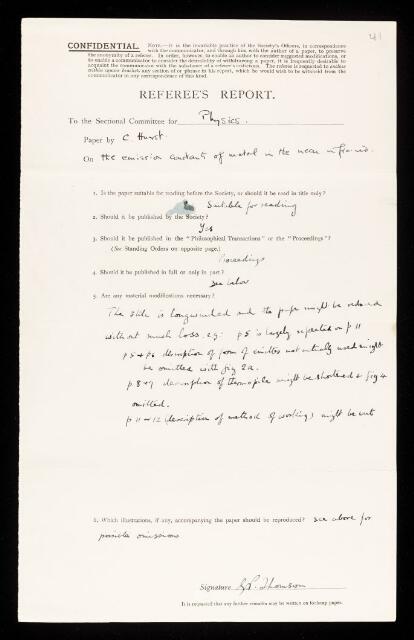 41
CONFIDENTIAL. NOTE.—It is the invariable practice of the Society's Officers, in correspondence
with the communicator, and through him with the author of a paper, to preserve
the anonymity of a referee. In order, however, to enable an author to consider suggested modifications, or
to enable a communicator to consider the desirability of withdrawing a paper, it is frequently desirable to
acquaint the communicator with the substance of a referee's criticisms. The referee is requested to enclose
within square brackets any section of or phrase in his report, which he would wish to be withheld from the
communicator in any correspondence of this kind.
REFEREE'S REPORT.
To the Sectional Committee for Physics.
Paper by C. Hurst
On the emission constants of metal in the near infra-red.
1. Is the paper suitable for reading before the Society, or should it be read in title only?
Suitable for reading
2. Should it be published by the Society?
Yes
3. Should it be published in the "Philosophical Transactions" or the "Proceedings"?
(See Standing Orders on opposite page.)
Proceedings
4. Should it be published in full or only in part?
see below
5. Are any material modifications necessary?
The style is longwinded and the paper might be reduced
without much loss. e.g. p 5 is largely repeated on p 11
p 5 + p 6 description of form of emitter not actually used might
be omitted with fig 2a.
p. 8 + 9 description of thermopile might be shortened + fig 4
omitted.
p 11 → 12 (description of method of working) might be cut
6. Which illustrations, if any, accompanying the paper should be reproduced? see above for
possible omissions
Signature G.P. Thomson
It is requested that any further remarks may be written on foolscap paper.